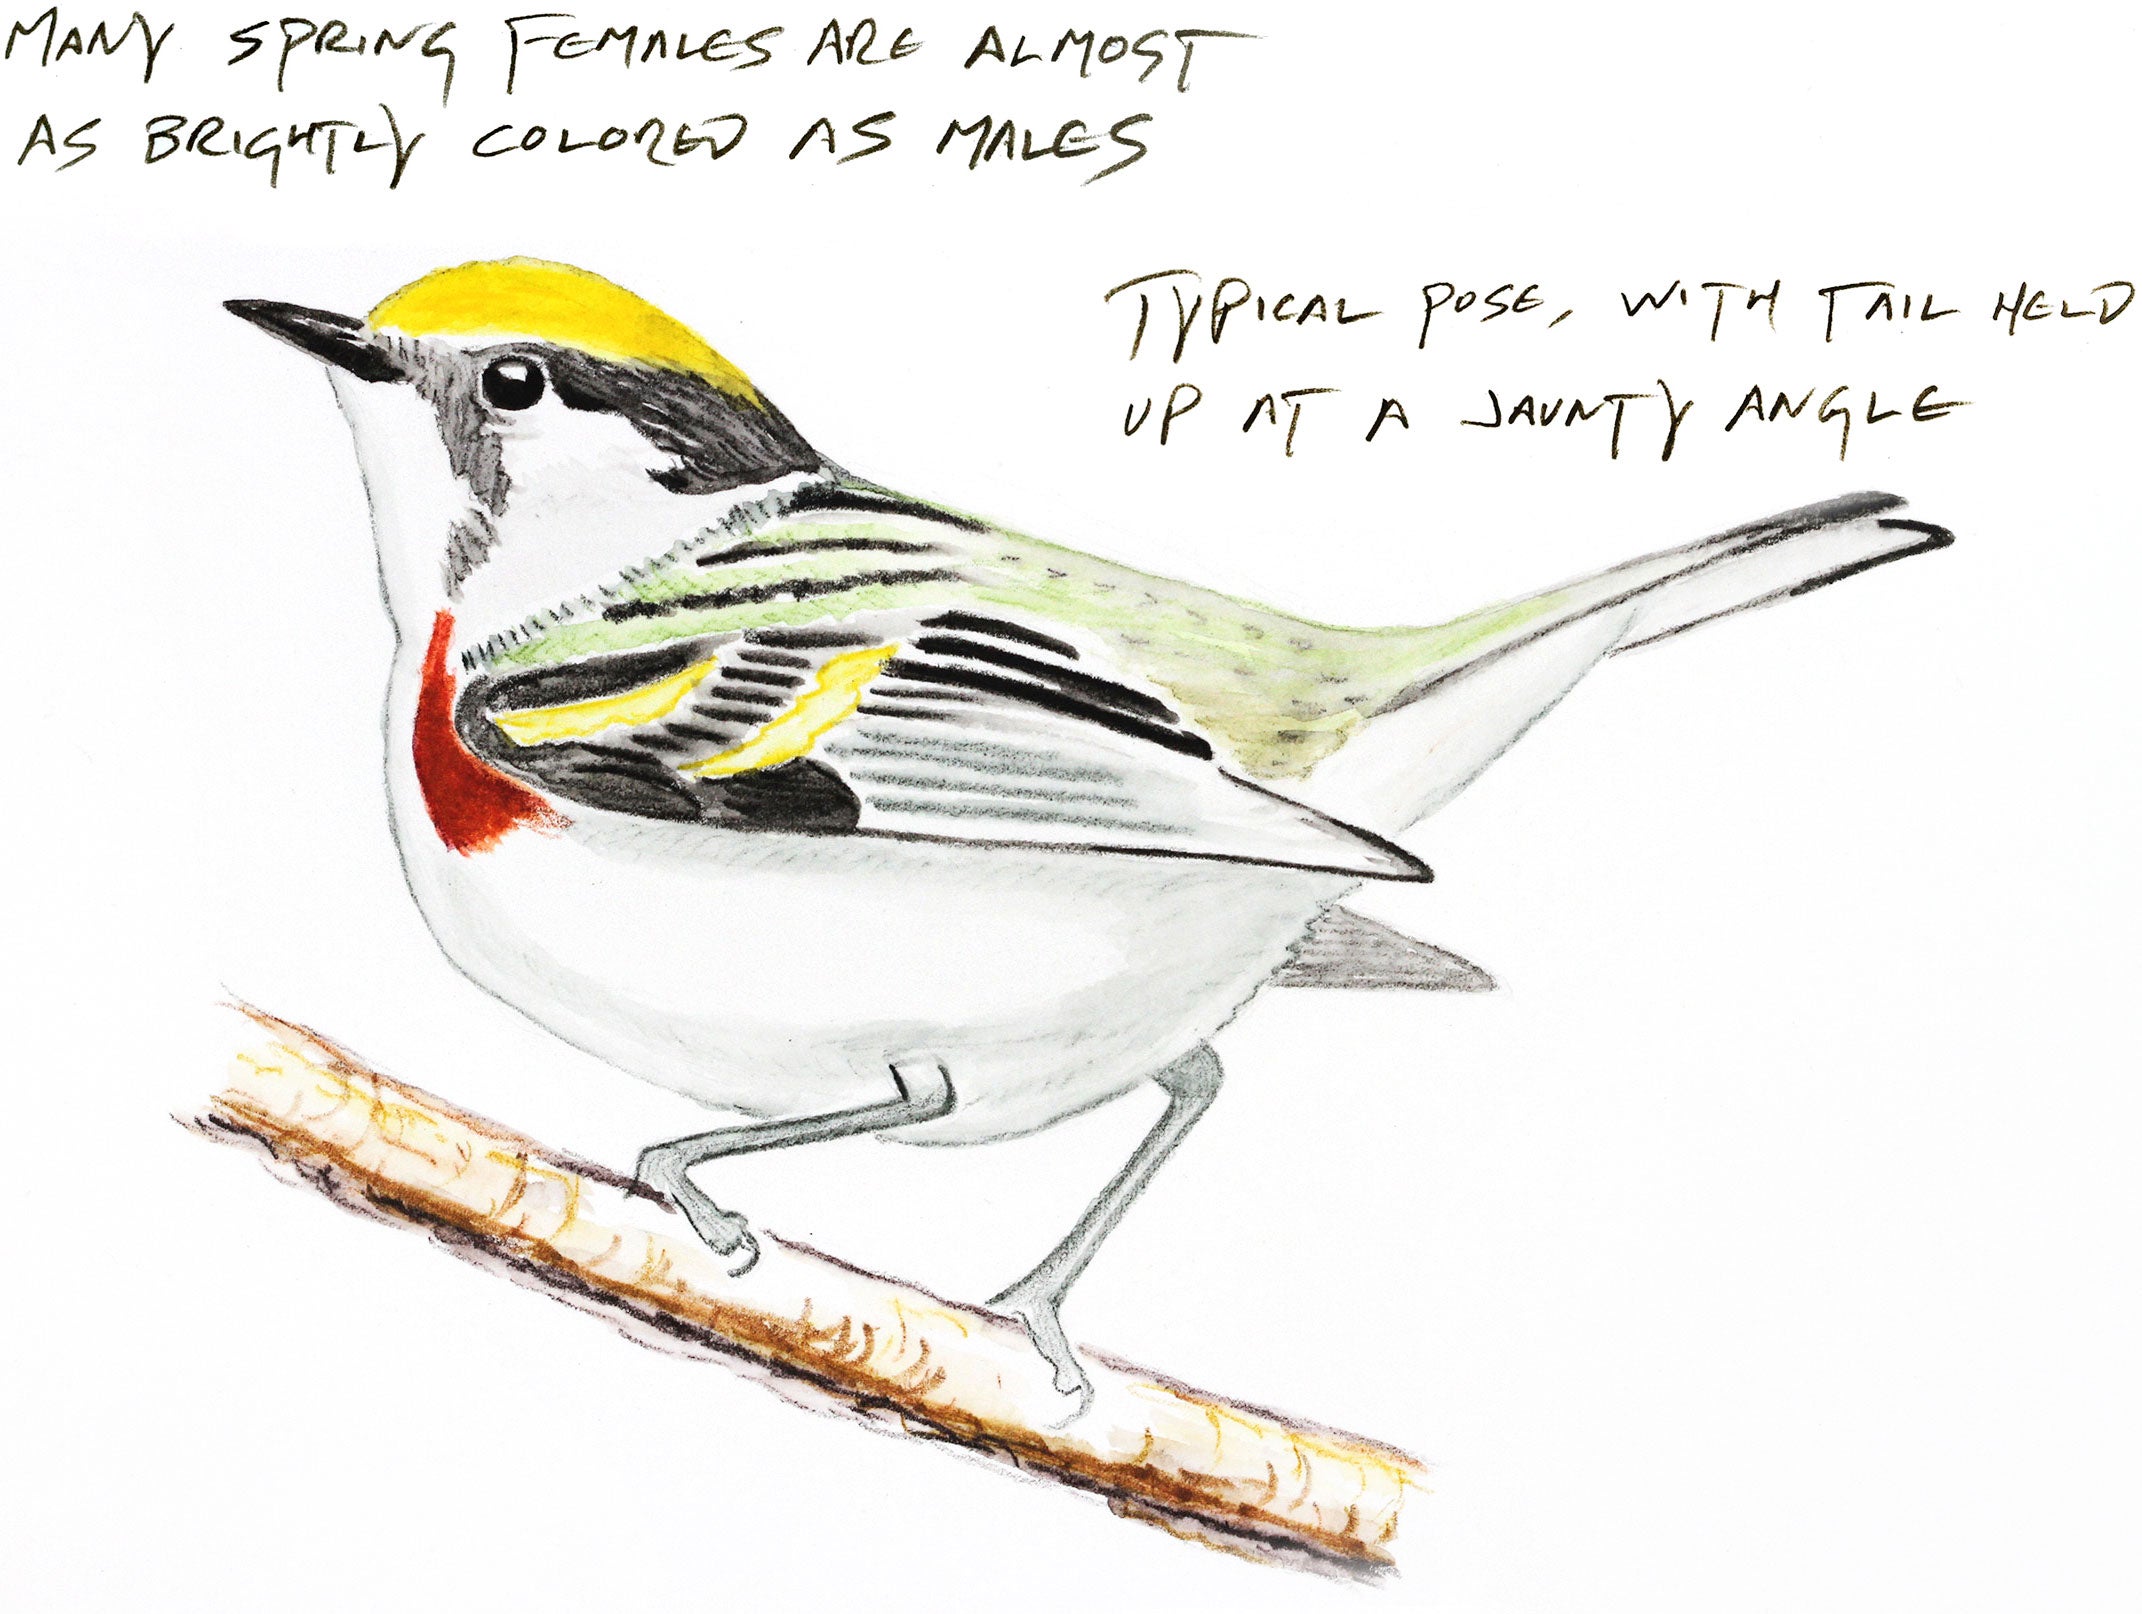 MANY SPRING FEMALES ARE ALMOST
AS BRIGHTLY COLORED AS MALES
TYPICAL POSE, WITH TAIL HELD
UP AT A JAUNTY ANGLE